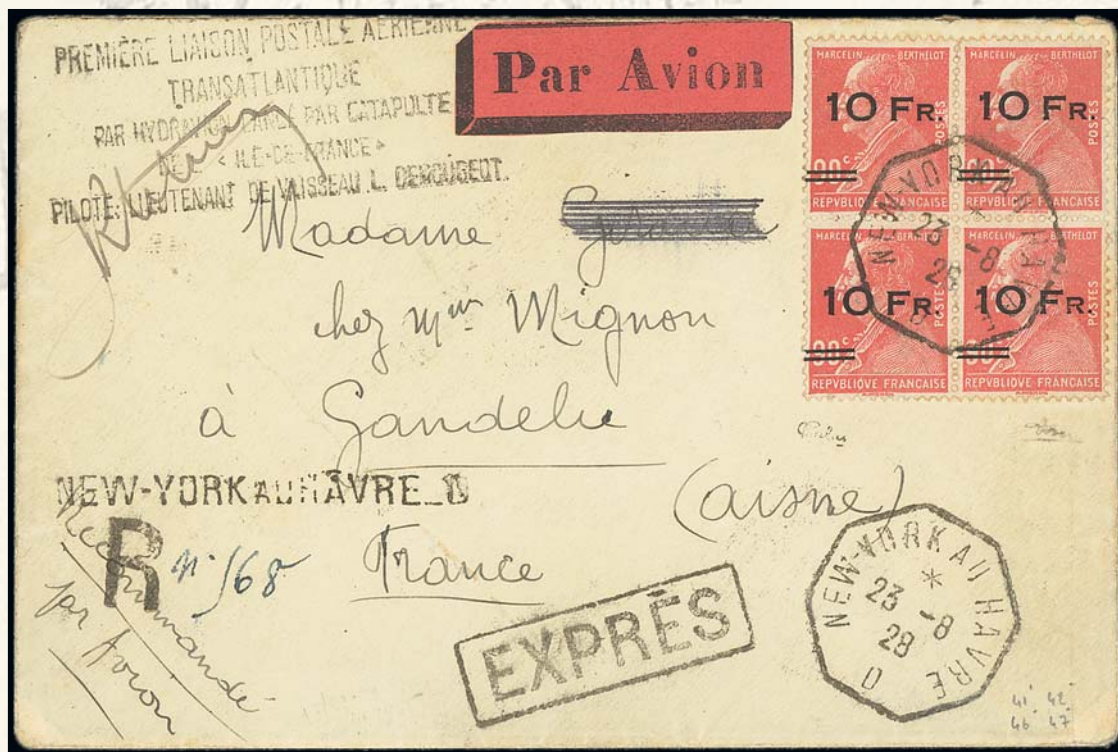 PREMIÈRE LIAISON POSTALE AÉRIENNE
TRANSATLANTIQUE
PAR HYDRAVION LANCÉ PAR CATAPULTE
DE L' < ILE-DE-FRANCE >
PILOTE: LIEUTENANT DE VAISSEAU L. DEMOUGEOT.
Par Avion
MARCELIN BERTHELOT
10 FR.
90c
POSTES
REPVBLIQVE FRANÇAISE
MARCELIN BERTHELOT
10 FR.
90c
POSTES
REPVBLIQVE FRANÇAISE
MARCELIN BERTHELOT
10 FR.
90c
POSTES
REPVBLIQVE FRANÇAISE
MARCELIN BERTHELOT
10 FR.
90c
POSTES
REPVBLIQVE FRANÇAISE
NEW-YORK AU HAVRE
23 -8
28
Madame
chez Mme Mignon
à Gandelu
(Aisne)
France
NEW-YORK AU HAVRE_D
R
n° 568
Recommandé
par Avion
EXPRÈS
NEW-YORK AU HAVRE D
*
23 -8
28
41 42
46 47